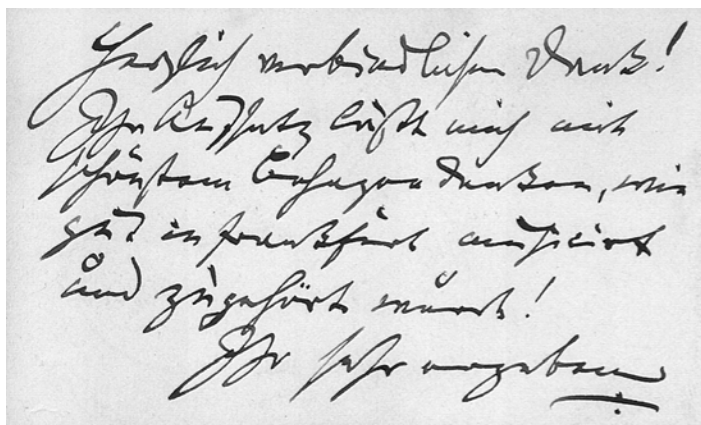 Herzlich verbindlichen Dank!
Ihr Aufsatz läßt mich mit
schönstem Behagen denken, wie
gut in Frankfurt musicirt
und zugehört wird!
Ihr sehr ergebener